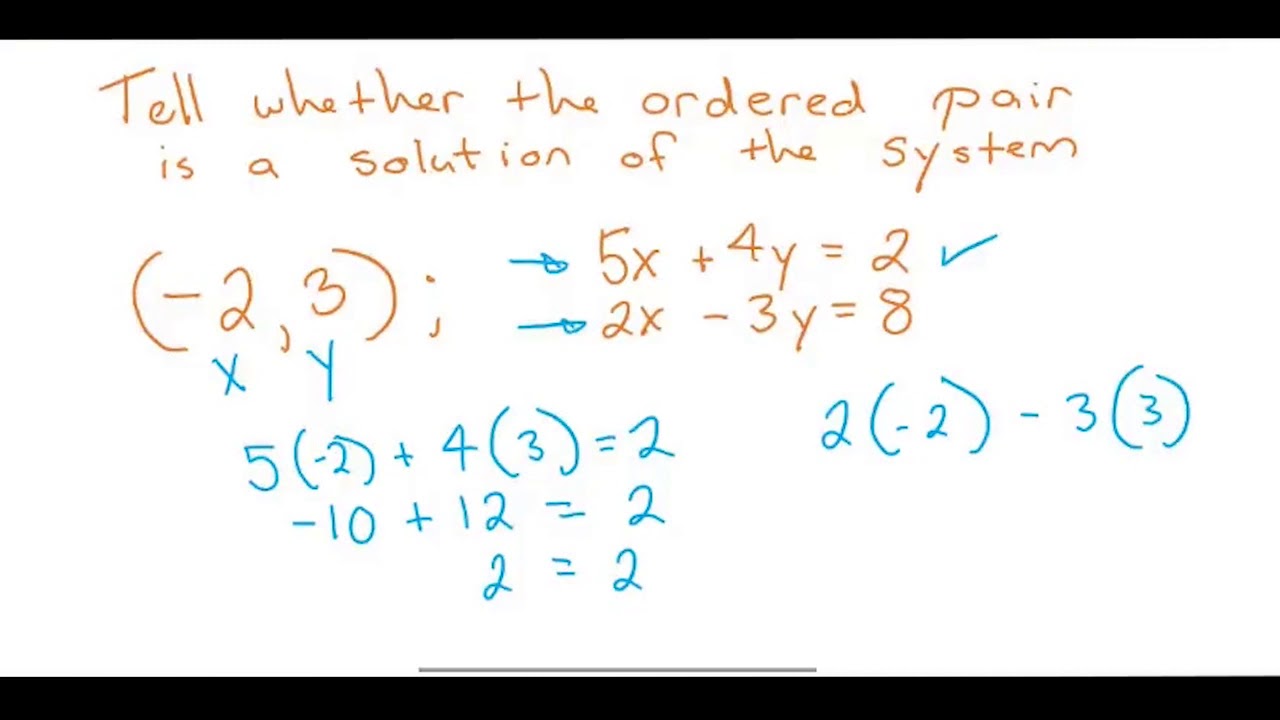 Tell whether the ordered pair
is a solution of the system
(-2, 3); → 5x + 4y = 2 ✓
→ 2x - 3y = 8
x y
5(-2) + 4(3) = 2
-10 + 12 = 2
2 = 2
2(-2) - 3(3)